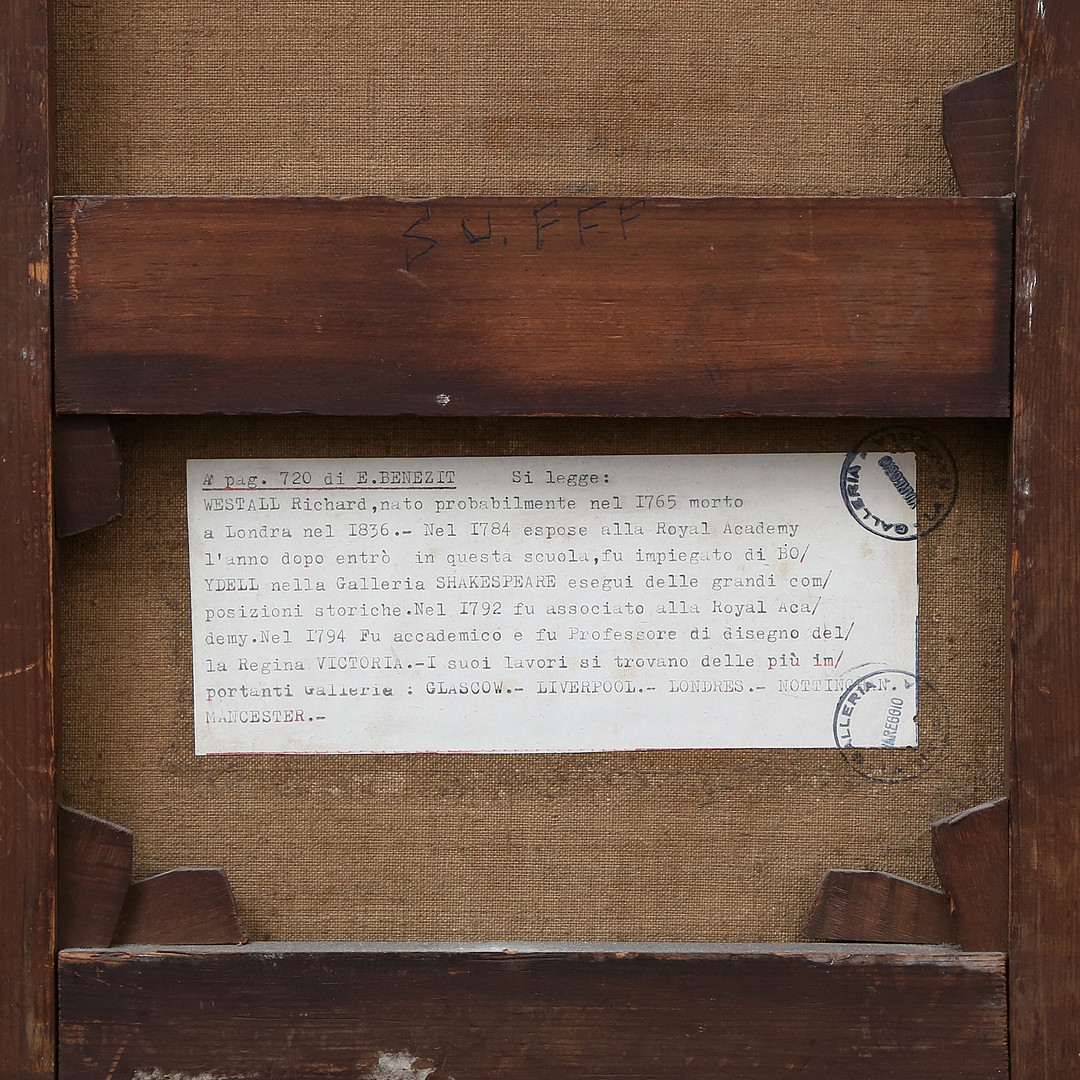 SU. FFF
A pag. 720 di E.BENEZIT Si legge:
WESTALL Richard,nato probabilmente nel I765 morto
a Londra nel I836.- Nel I784 espose alla Royal Academy
l'anno dopo entrò in questa scuola,fu impiegato di BO/
YDELL nella Galleria SHAKESPEARE esegui delle grandi com/
posizioni storiche.Nel I792 fu associato alla Royal Aca/
demy.Nel I794 Fu accademico e fu Professore di disegno del/
la Regina VICTORIA.-I suoi lavori si trovano delle più im/
portanti Galleria : GLASCOW.- LIVERPOOL.- LONDRES.- NOTTINGHAN.
MANCESTER.-
GALLERIA
VIAREGGIO
GALLERIA
VIAREGGIO